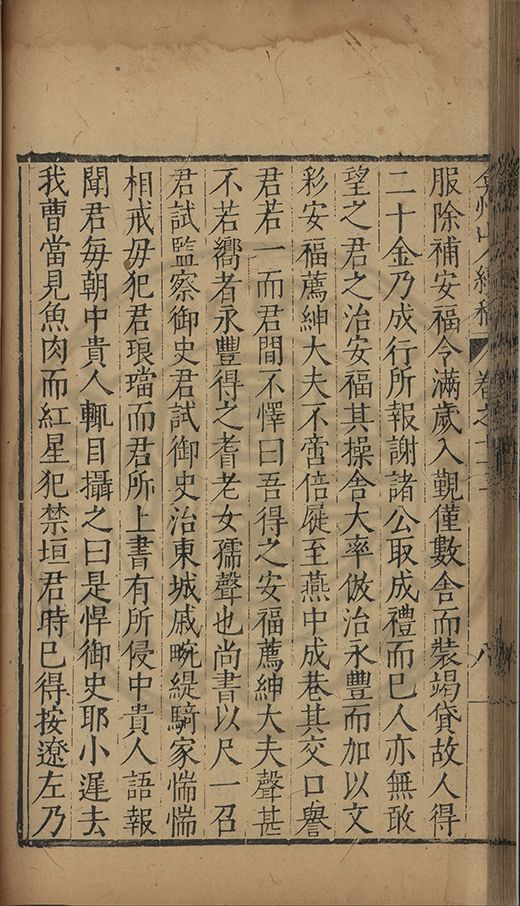 弇州山人續稿 卷之一百 八
服除補安福令滿歲入覲僅數舍而裝竭貸故人得
二十金乃成行所報謝諸公取成禮而已人亦無敢
望之君之治安福其操舍大率倣治永豐而加以文
彩安福薦紳大夫不啻倍屣至燕中成巷其交口譽
君若一而君間不懌曰吾得之安福薦紳大夫聲甚
不若嚮者永豐得之耆老女孺聲也尚書以尺一召
君試監察御史君試御史治東城戚畹緹騎家惴惴
相戒毋犯君琅璫而君所上書有所侵中貴人語報
聞君每朝中貴人輒目攝之曰是悍御史耶小遲去
我曹當見魚肉而紅星犯禁垣君時已得按遼左乃